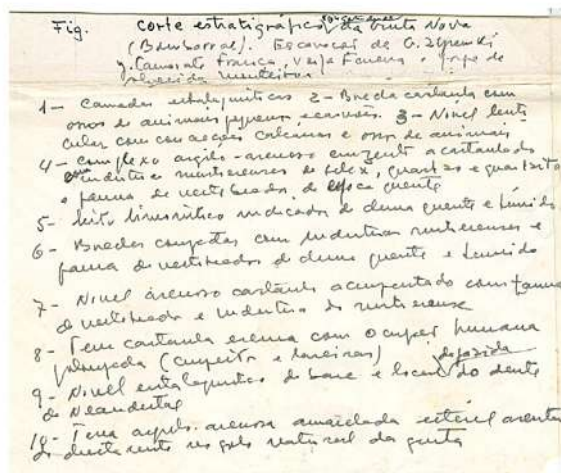 Fig. Corte estratigráfico da Gruta Nova
(Bombarral). Escavações de G. Zbyszewski
J. Camarate França, Veiga Ferreira e
de Almeida Monteiro
1 - Camadas estalagmíticas 2 - Brecha castanha com
ossos de animais pequenos e carvões. 3 - Nível lenti
cular com concreções calcárias e ossos de animais
4 - complexo argilo-arenoso cinzento acastanhado
indústrias musterienses de silex, quartzo e quartzito
e fauna de vertebrados de época quente
5 - leito limonítico indicador de clima quente e húmido
6 - Brechas compactas com indústrias musterienses e
fauna de vertebrados de clima quente e húmido
7 - Nível arenoso castanho acinzentado com fauna
de vertebrados e indústria do musterense
8 - Terra castanha escura com ocupação humana
prolongada (e lareiras)
9 - Nível estalagmítico de base e local do dente
de Neandertal
10 - Terra argilo-arenosa amarelada estéril assentan
do directamente no solo natural da gruta